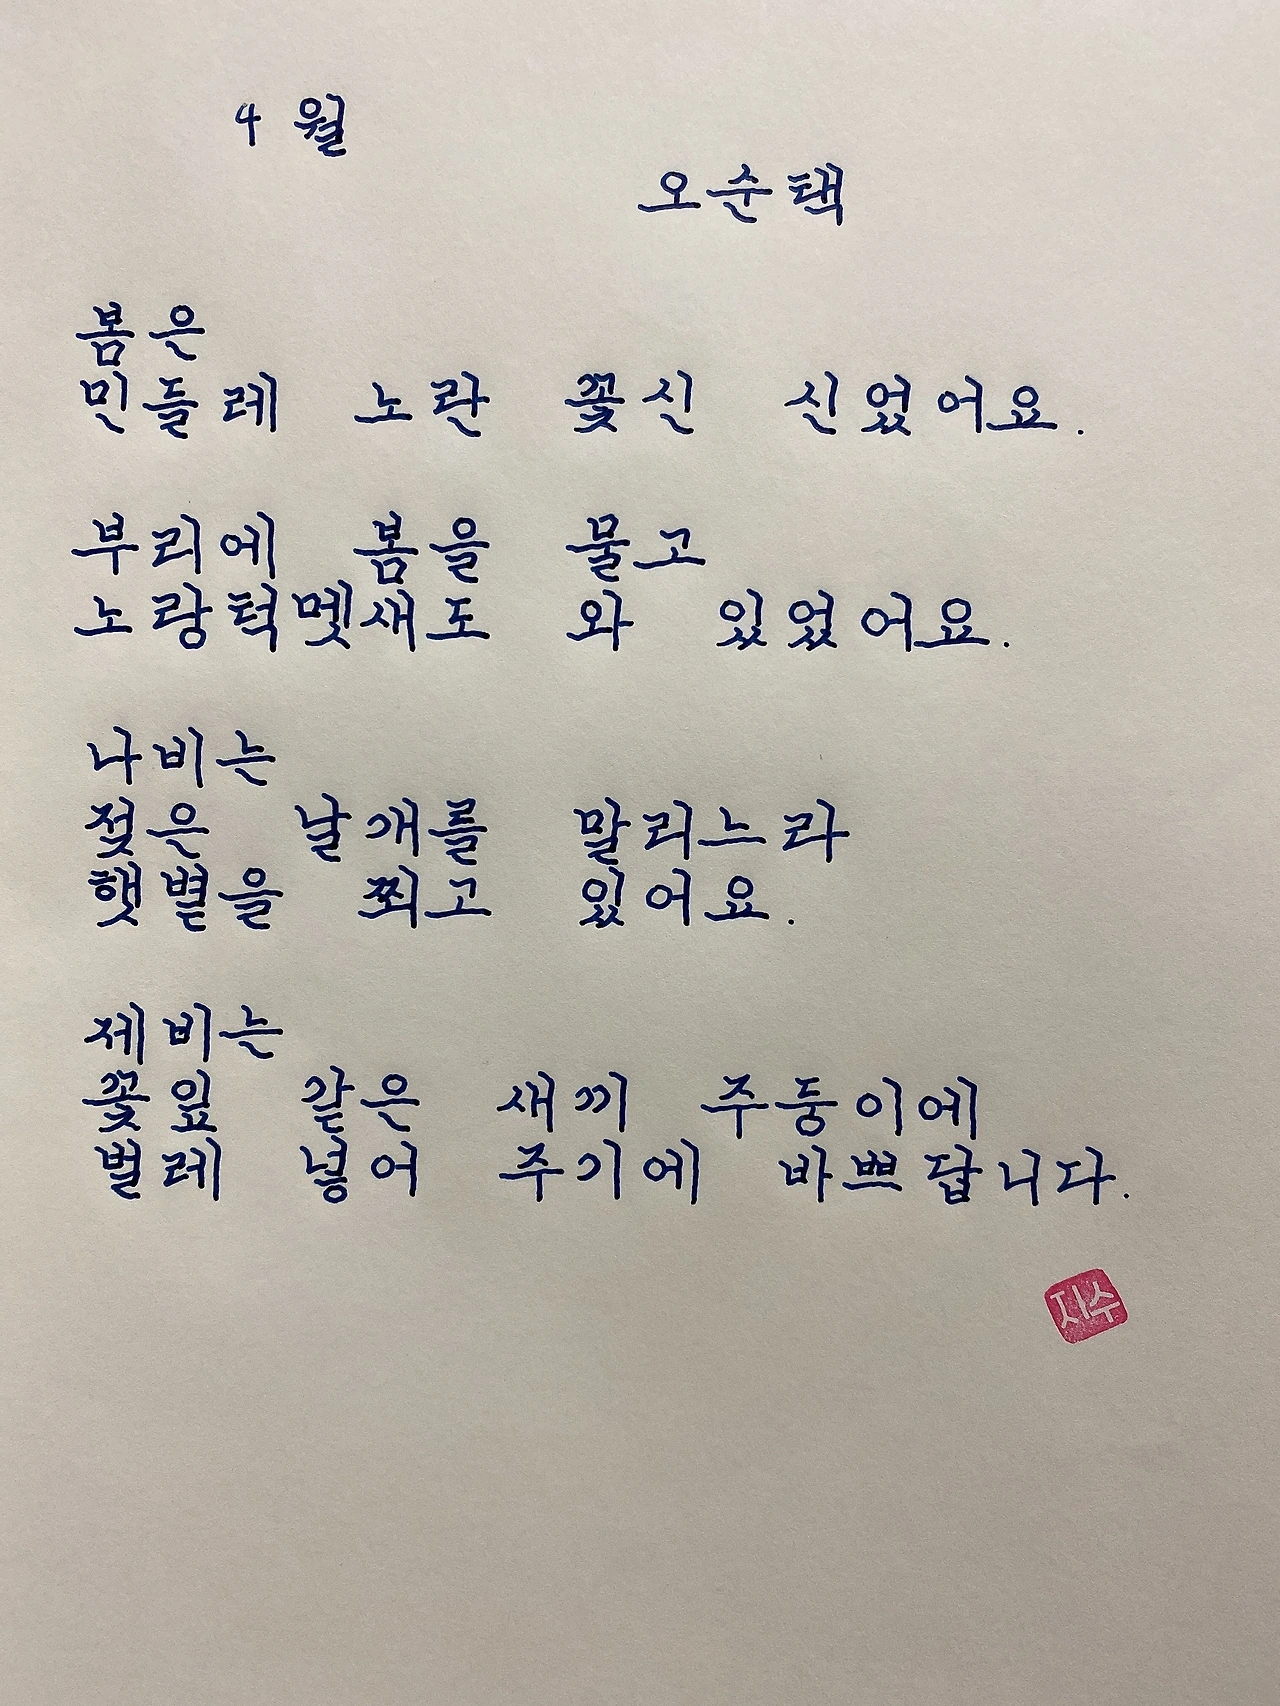 4월
오순택
봄은
민들레 노란 꽃신 신었어요.
부리에 봄을 물고
노랑턱멧새도 와 있었어요.
나비는
젖은 날개를 말리느라
햇볕을 쬐고 있어요.
제비는
꽃잎 같은 새끼 주둥이에
벌레 넣어 주기에 바쁘답니다.
지수